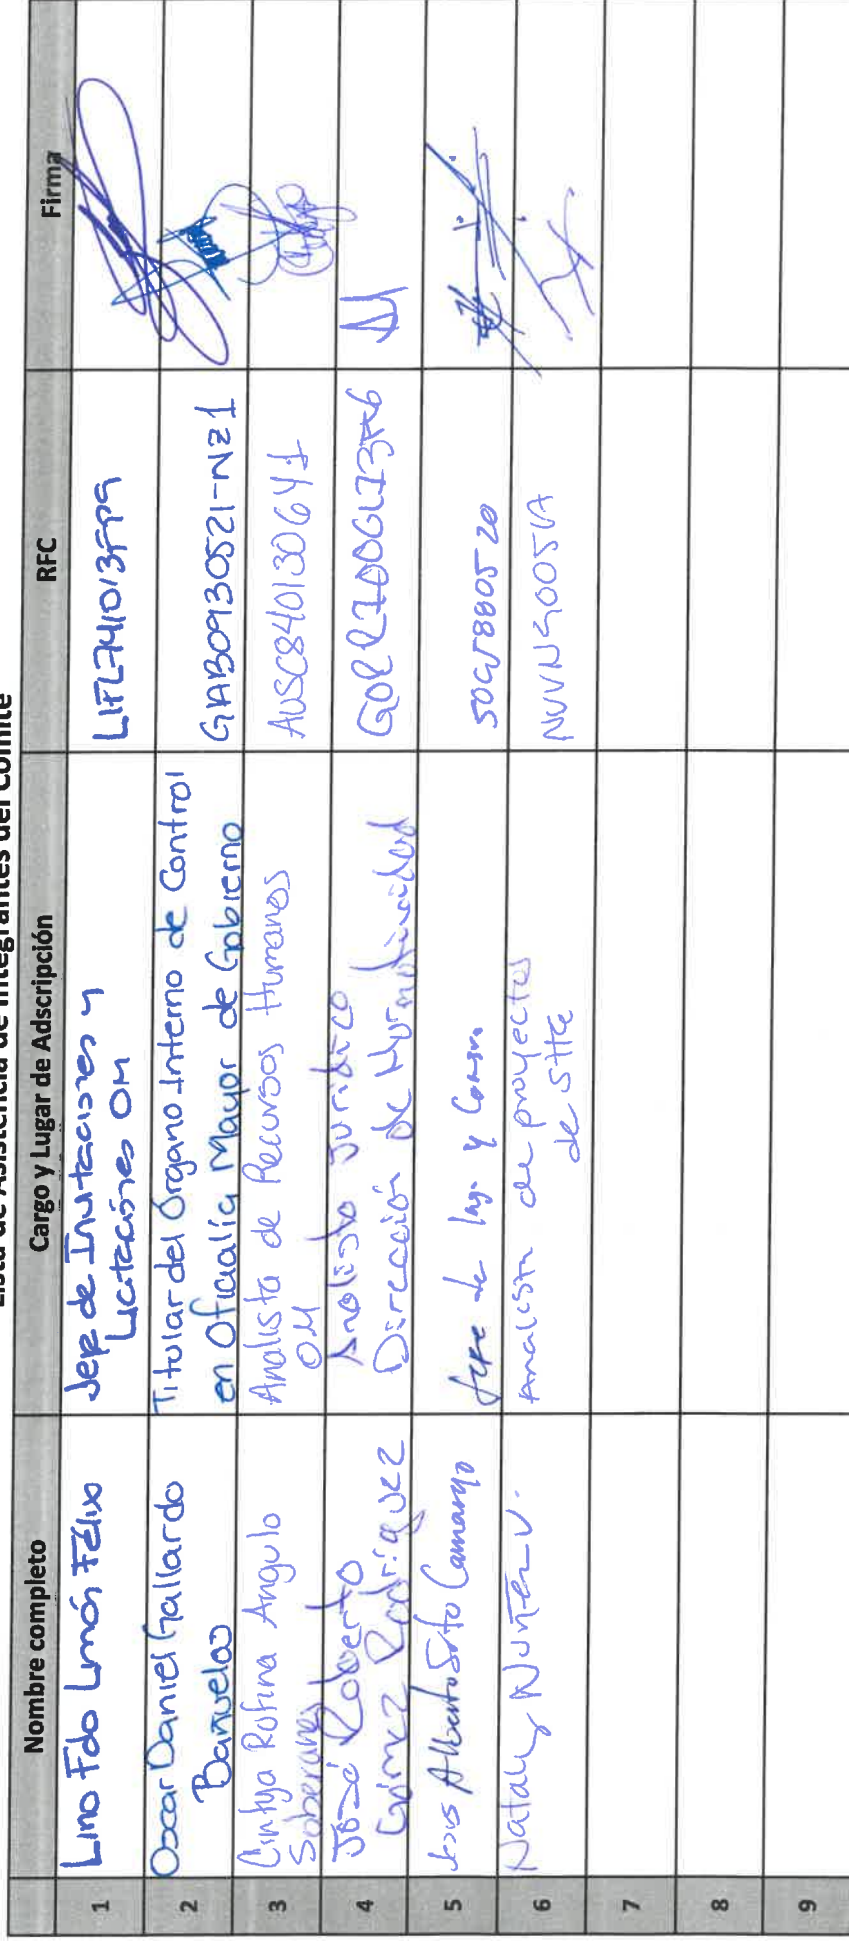 Lista de Asistencia de Integrantes del Comité
Nombre completo
Cargo y Lugar de Adscripción
RFC
Firma
1
Lino Fdo Limón Félix
Jefe de Invitaciones y
Licitaciones OM
LIFL741013FP9
2
Oscar Daniel Gallardo
Bañuelos
Titular del Órgano Interno de Control
en Oficialía Mayor de Gobierno
GABO930521-NZ1
3
Cinthya Rofina Angulo
Soberanes
Analista de Recursos Humanos
OM
AUSC840130641
4
José Roberto
Gómez Rodríguez
Analista Jurídico
Dirección de Normatividad
5
Jesus Alberto Soto Camargo
Jefe de Ing. y Conserv
SOCJ880520
6
Nataly Nuñez V.
Analista de proyectos
de STTC
7
8
9